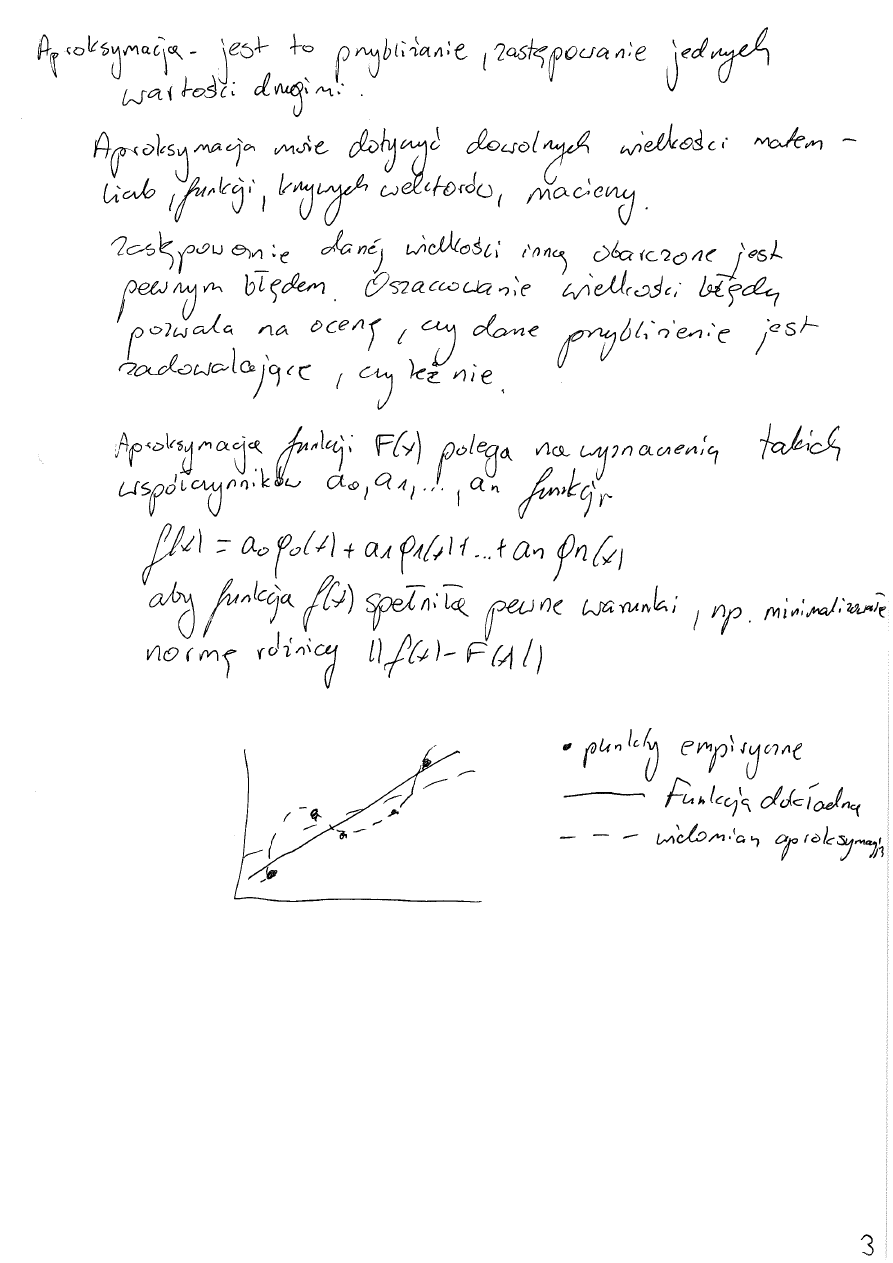 Aproksymacja - jest to przybliżanie, zastępowanie jednych
wartości drugimi.
Aproksymacja może dotyczyć dowolnych wielkości matem -
liczb, funkcji, krzywych wektorów, macierzy.
Zastępowanie danej wielkości inną obarczone jest
pewnym błędem. Oszacowanie wielkości błędu
pozwala na ocenę, czy dane przybliżenie jest
zadowalające, czy też nie.
Aproksymacja funkcji F(x) polega na wyznaczeniu takich
współczynników a0, a1, ..., an funkcji
f(x) = a0 φ0(x) + a1 φ1(x) + ... + an φn(x)
aby funkcja f(x) spełniła pewne warunki, np. minimalizowała
normę różnicy ||f(x) - F(x)||
• punkty empiryczne
Funkcja dokładna
wielomian aproksymacji
3